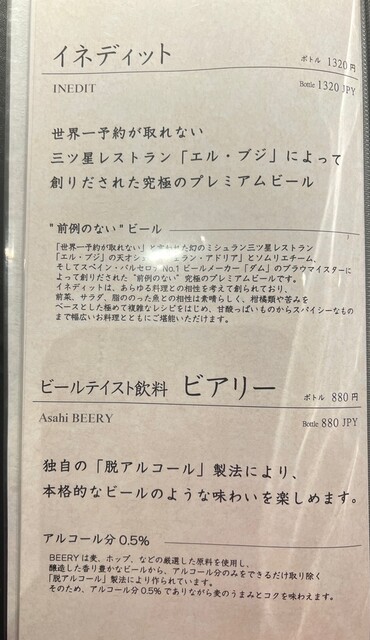 イネディット ボトル 1320円
INEDIT Bottle 1320 JPY
世界一予約が取れない
三ツ星レストラン「エル・ブジ」によって
創りだされた究極のプレミアムビール
"前例のない"ビール
「世界一予約が取れない」と言われた幻のミシュラン三ツ星レストラン
「エル・ブジ」の天才シェフ フェラン・アドリア」とソムリエチーム、
そしてスペイン・バルセロナNo.1ビールメーカー「ダム」のブラウマイスターに
よって創りだされた"前例のない"究極のプレミアムビールです。
イネディットは、あらゆる料理との相性を考えて創られており、
前菜、サラダ、脂ののった魚との相性は素晴らしく、柑橘類や苦みを
ベースとした極めて複雑なレシピをはじめ、甘酸っぱいものからスパイシーなもの
まで幅広いお料理とともにご堪能いただけます。
ビールテイスト飲料 ビアリー ボトル 880円
Asahi BEERY Bottle 880 JPY
独自の「脱アルコール」製法により、
本格的なビールのような味わいを楽しめます。
アルコール分0.5%
BEERYは麦、ホップ、などの厳選した原料を使用し、
醸造した香り豊かなビールから、アルコール分のみをできるだけ取り除く
「脱アルコール」製法により作られています。
そのため、アルコール分0.5%でありながら麦のうまみとコクを味わえます。